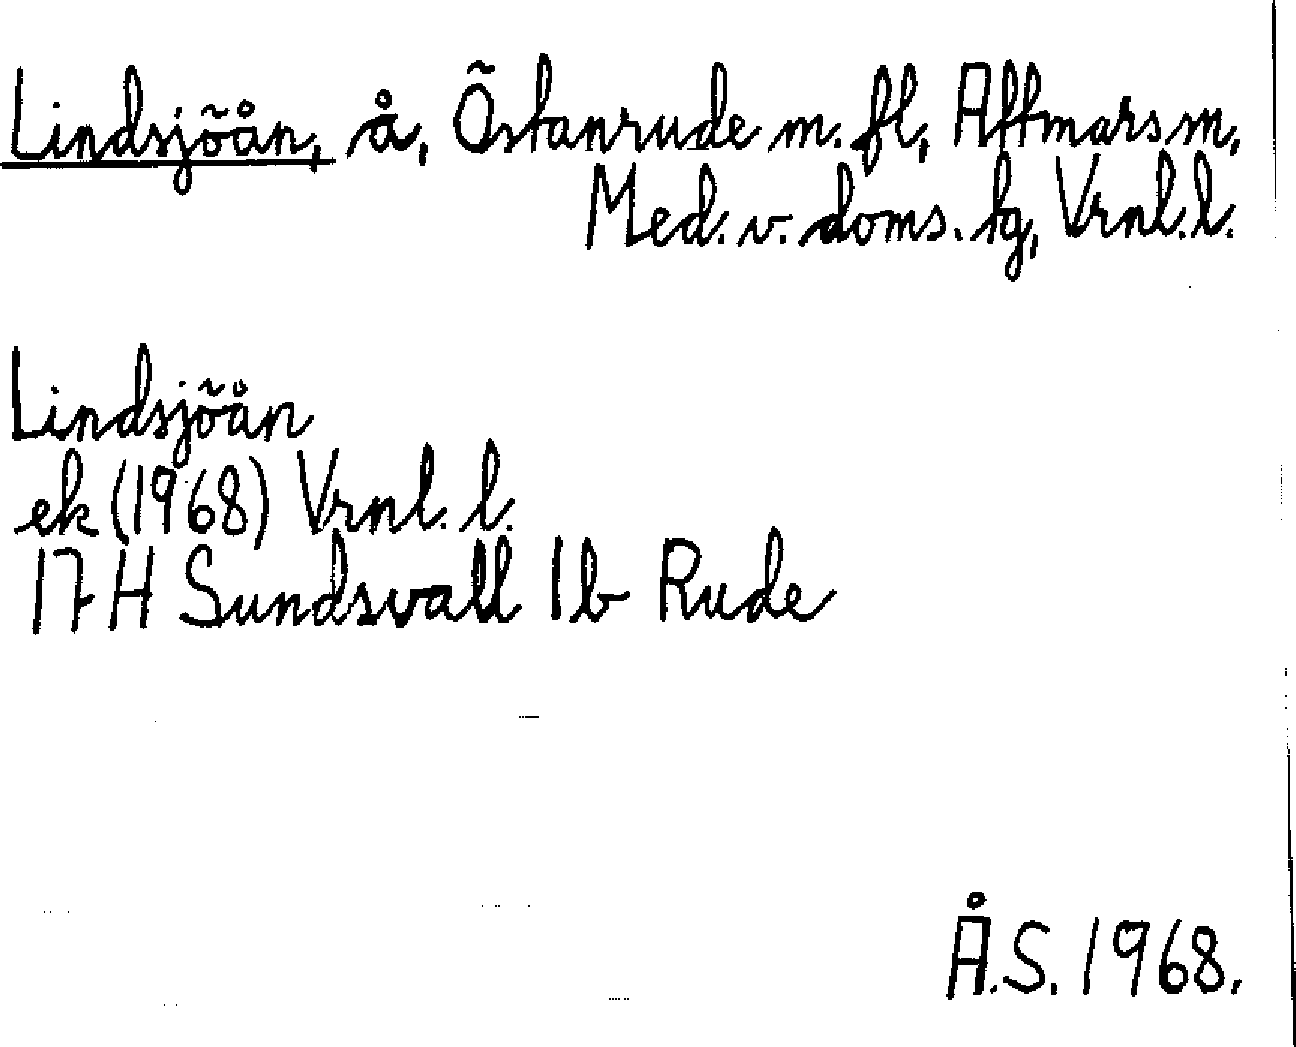 Lindsjöån, å, Östanrude m. fl., Attmars sn,
Med. v. doms. tg, Vrnl. l.
Lindsjöån
ek (1968) Vrnl. l.
17 H Sundsvall 1b Rude
Å.S. 1968.